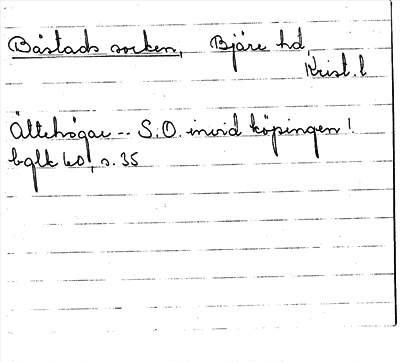 Båstads socken, Bjäre hd,
Krist. l
Ättehögar -- S.O. invid köpingen!
bglk 60, s. 35